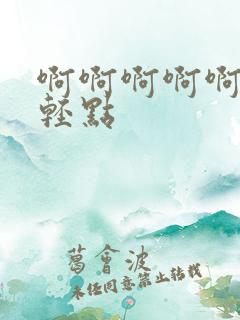 啊啊啊啊啊
輕點
葛會波
未经同意禁止转载